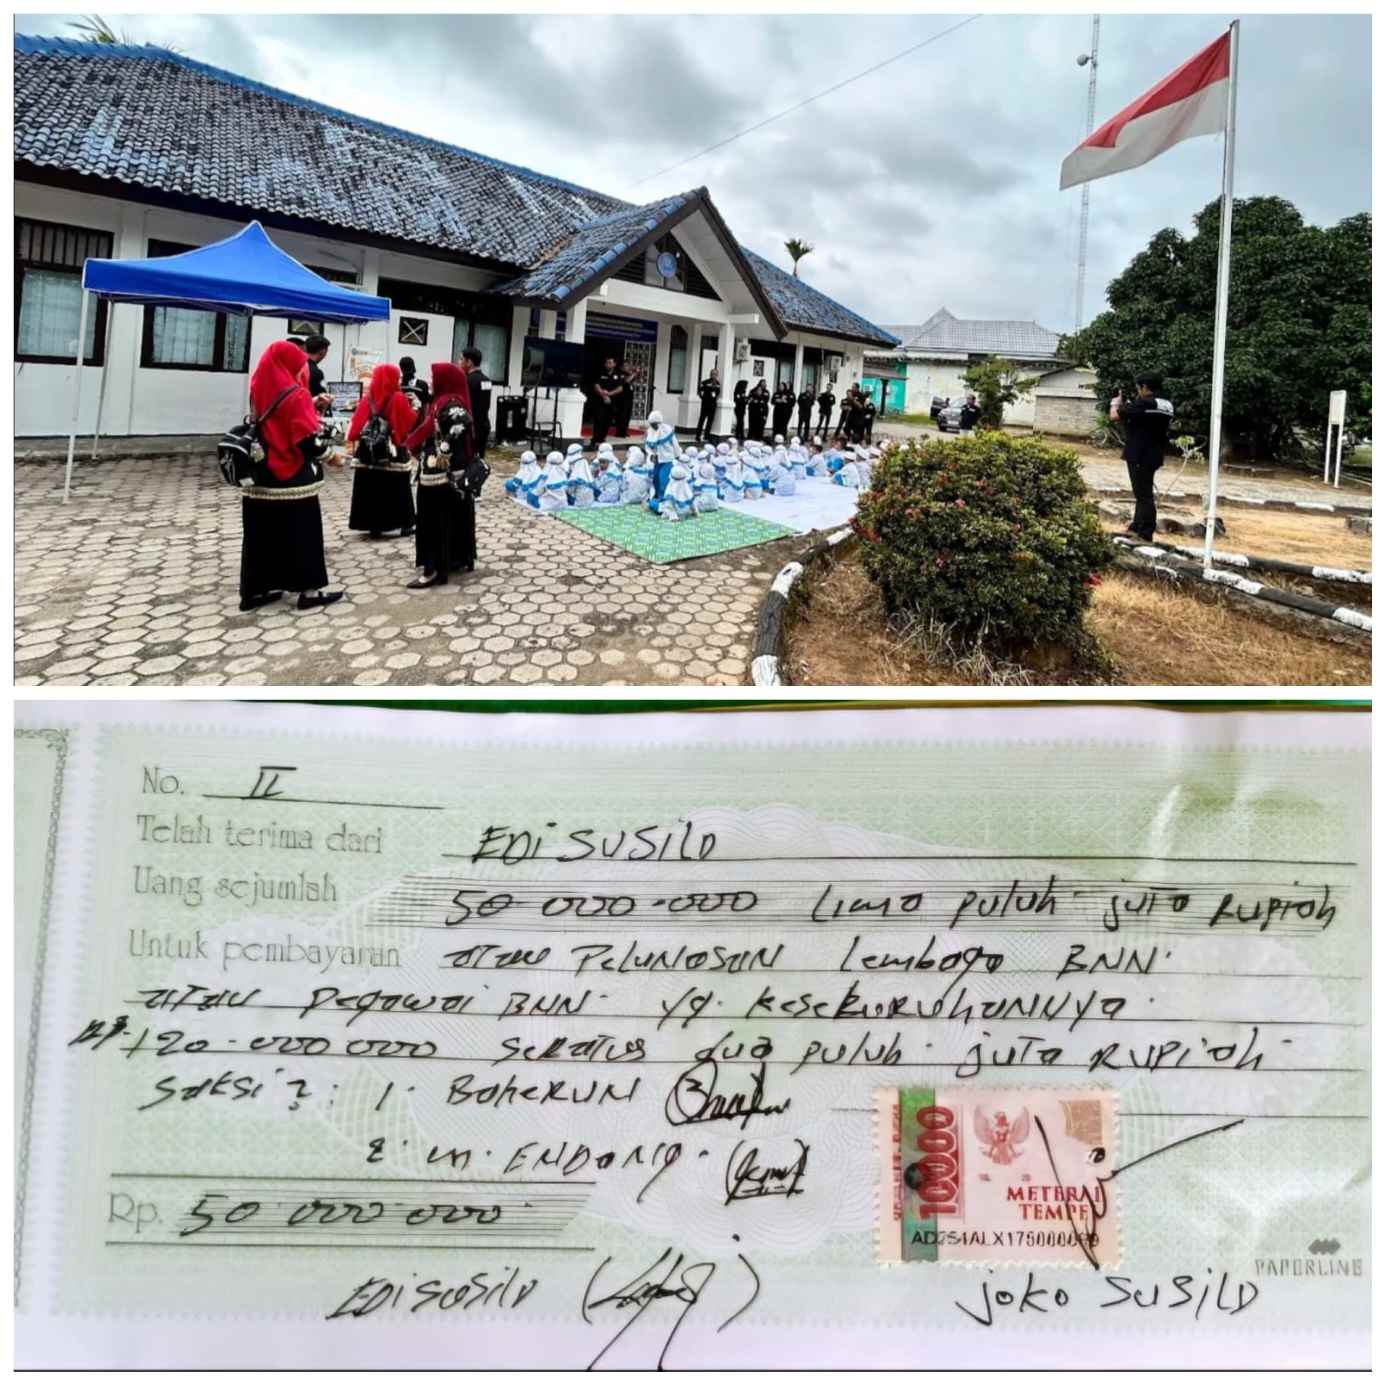 No. II
Telah terima dari EDi SUSiLO
Uang sejumlah 50.000.000 Lima puluh juta Rupiah
Untuk pembayaran atau PELUNASAN Lembaga BNN.
atau pegawai BNN. yg. keseluruhannya.
Rp. 120.000.000 seratus dua puluh juta RUPiah
saksi 2 : 1. BAHERUN
2. M. ENDANG.
10000
METERAI
TEMPEL
Rp. 50.000.000
PAPERLINE
EDi SUSiLO
joko SUSiLO